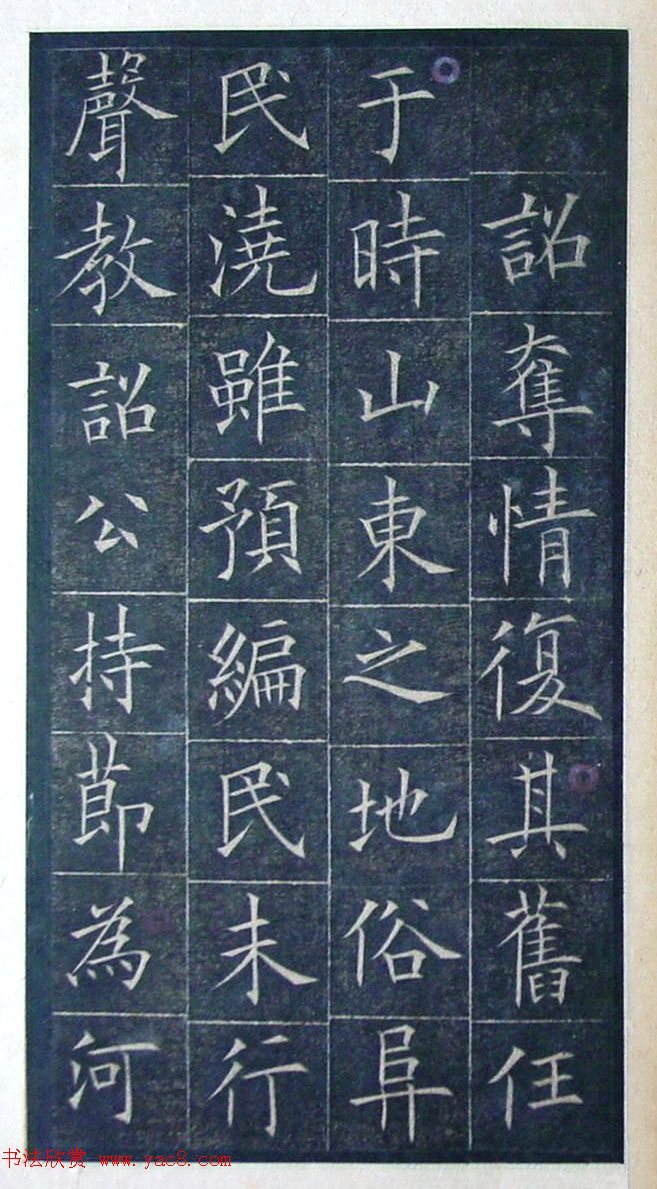 詔奪情復其舊任
于時山東之地俗阜
民澆雖預編民未行
聲教詔公持節為河
书法欣赏 www.yac8.com